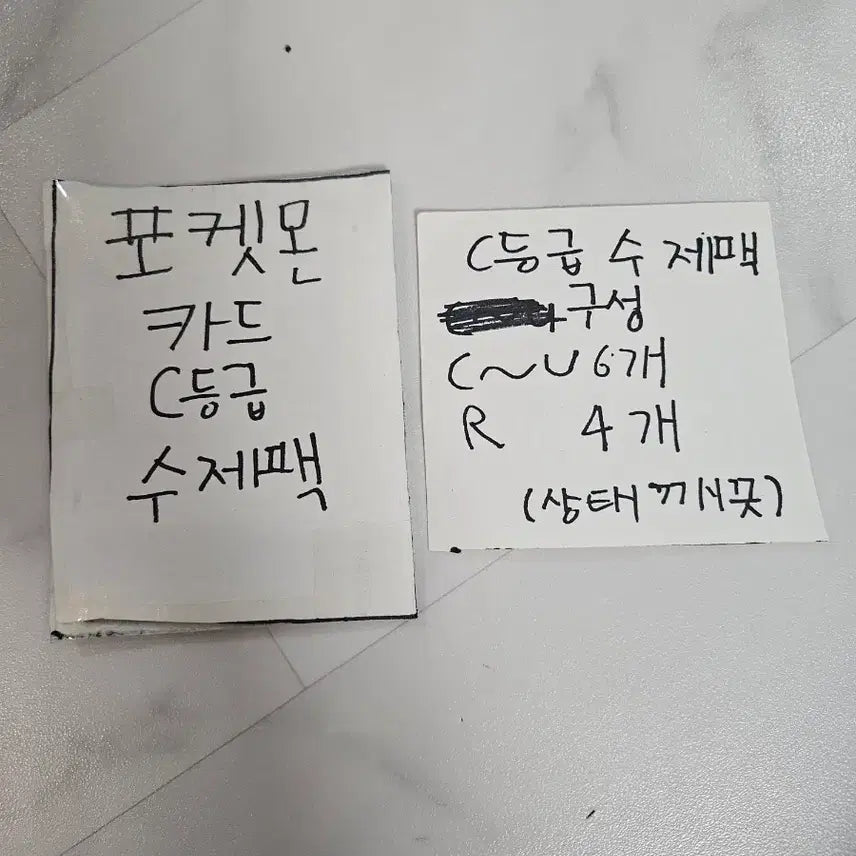 포켓몬
카드
C등급
수제팩
C등급 수제팩
구성
C~U 6개
R 4개
(상태 깨끗)